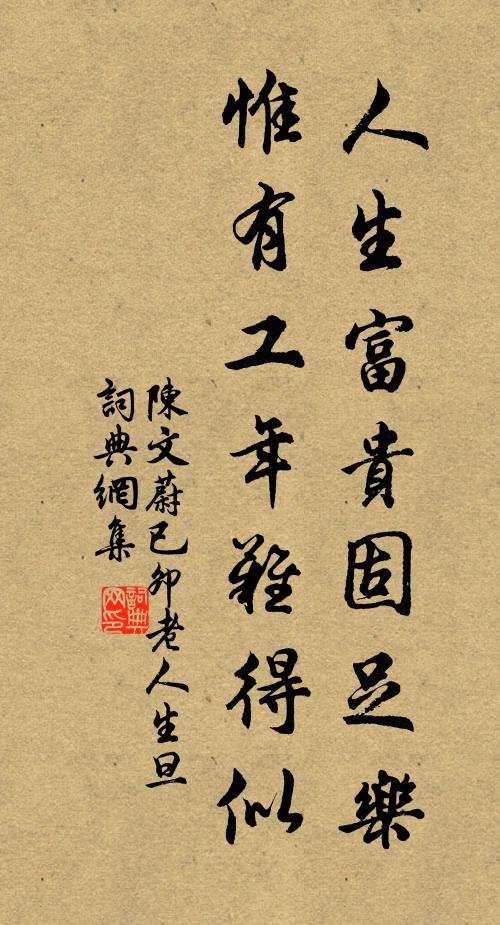 人生富貴固足樂
惟有工年難得似
陳文蔚已卯老人生旦
詞典網集
詞典网印